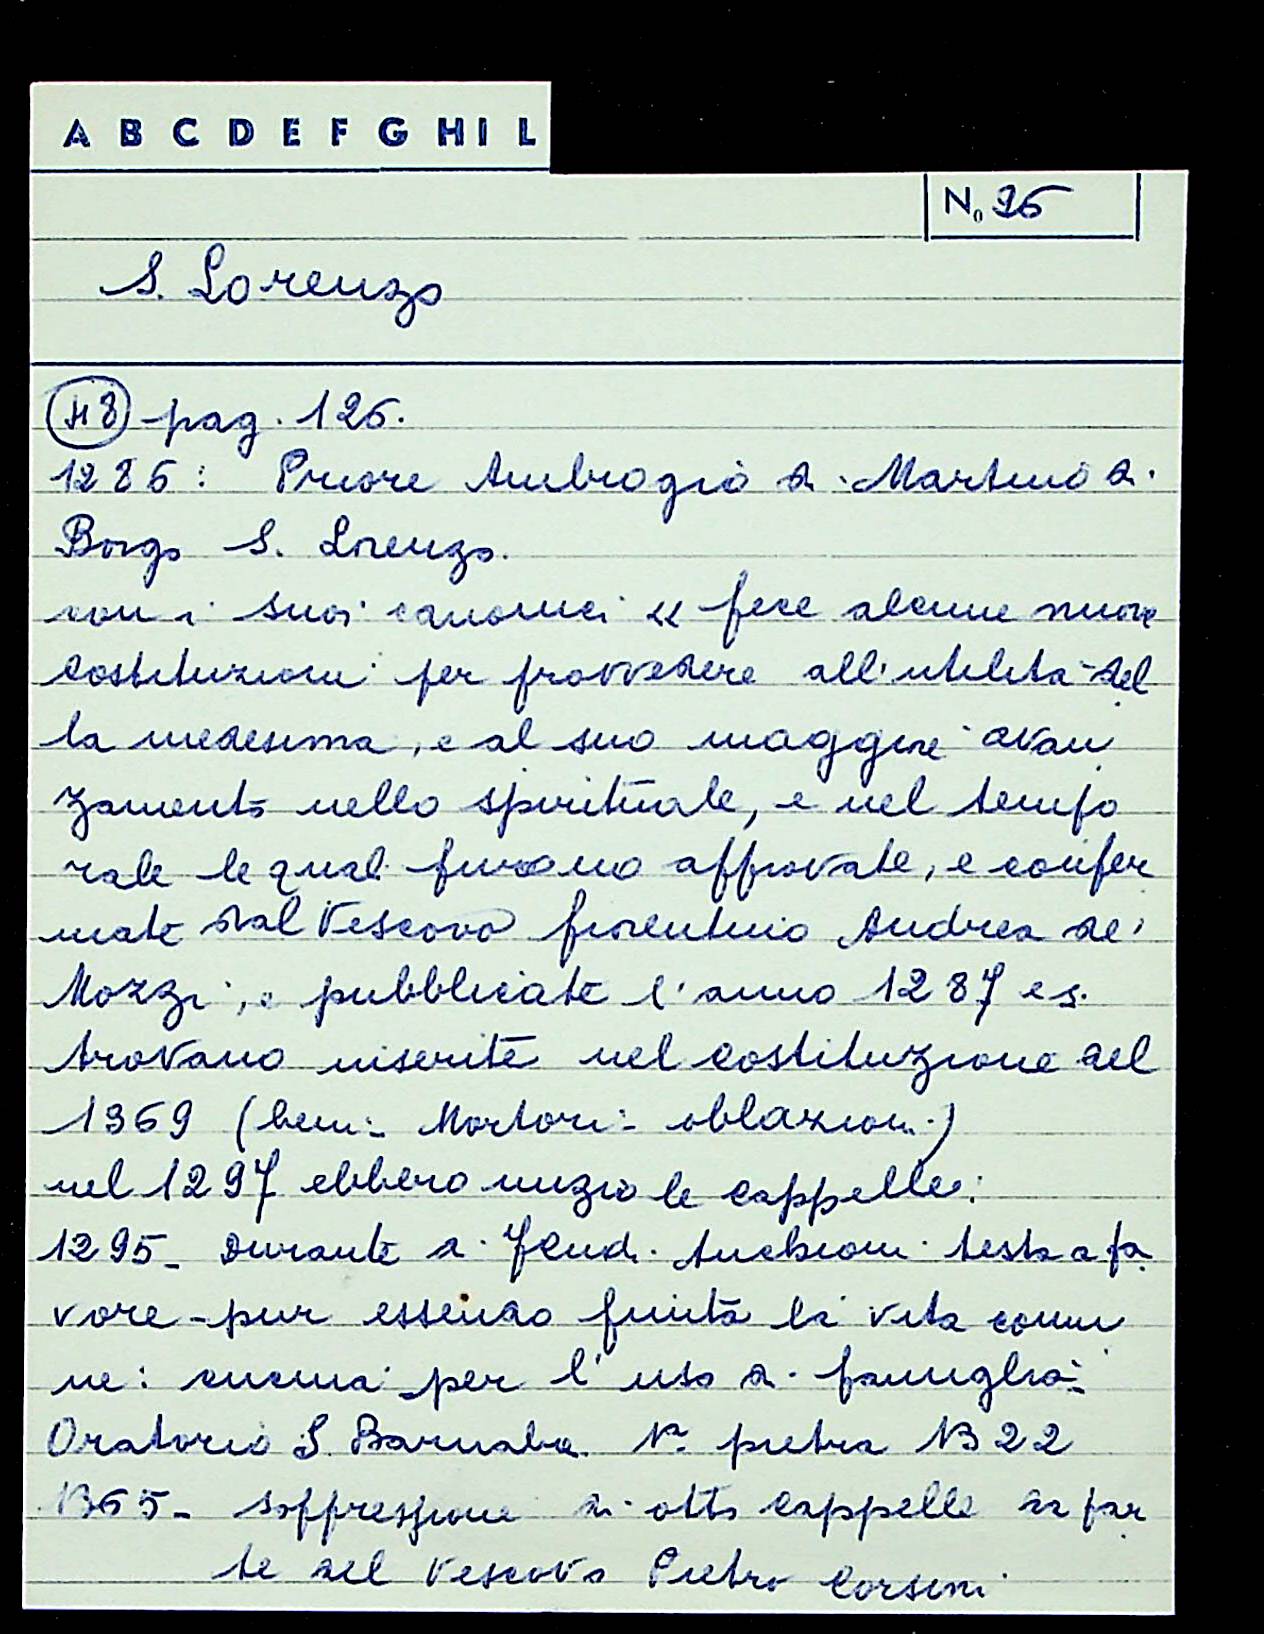 A B C D E F G H I L
No 26
S. Lorenzo
pag. 126.
1286: Priore Ambrogio di Martino di
Borgo S. Lorenzo.
con i suoi canonici « fece alcune nuove
costituzioni per provvedere all'utilità del
la medesima, e al suo maggiore avan
zamento nello spirituale, e nel tempo
rale le quali furono approvate, e confer
mate dal Vescovo fiorentino Andrea de'
Mozzi, e pubblicate l'anno 1287 e si
trovano inserite nel costituzione del
1369 (beni - Mortori - oblazioni)
nel 1297 ebbero inizio le cappelle:
1295 - Durante di testa a fa
vore - pur essendo finita la vita comu
ne: cucina per l'uso di famiglia -
Oratorio S. Barnaba. Nª pietra 1322
1365 - soppressione di otto cappelle da par
te del Vescovo Pietro Corsini